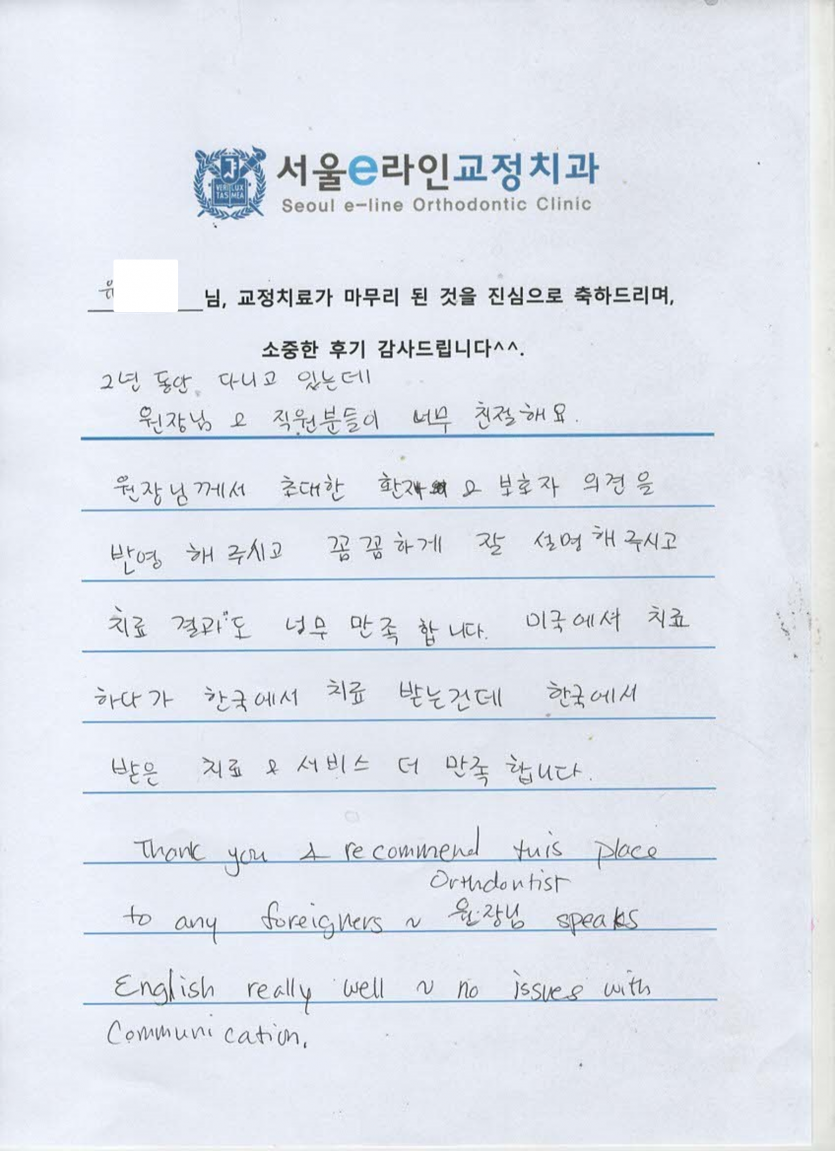 서울e라인교정치과
Seoul e-line Orthodontic Clinic
VERI LUX TAS MEA
님, 교정치료가 마무리 된 것을 진심으로 축하드리며,
소중한 후기 감사드립니다^^.
2년 동안 다니고 있는데
원장님 & 직원분들이 너무 친절해요.
원장님께서 초대한 환자 & 보호자 의견을
반영 해 주시고 꼼꼼하게 잘 설명 해 주시고
치료 결과도 너무 만족 합니다. 미국에서 치료
하다가 한국에서 치료 받는건데 한국에서
받은 치료 & 서비스 더 만족 합니다.
Thank you & recommend this place
to any foreigners ~ 원장님 Orthdontist speaks
English really well ~ no issues with
Communication.